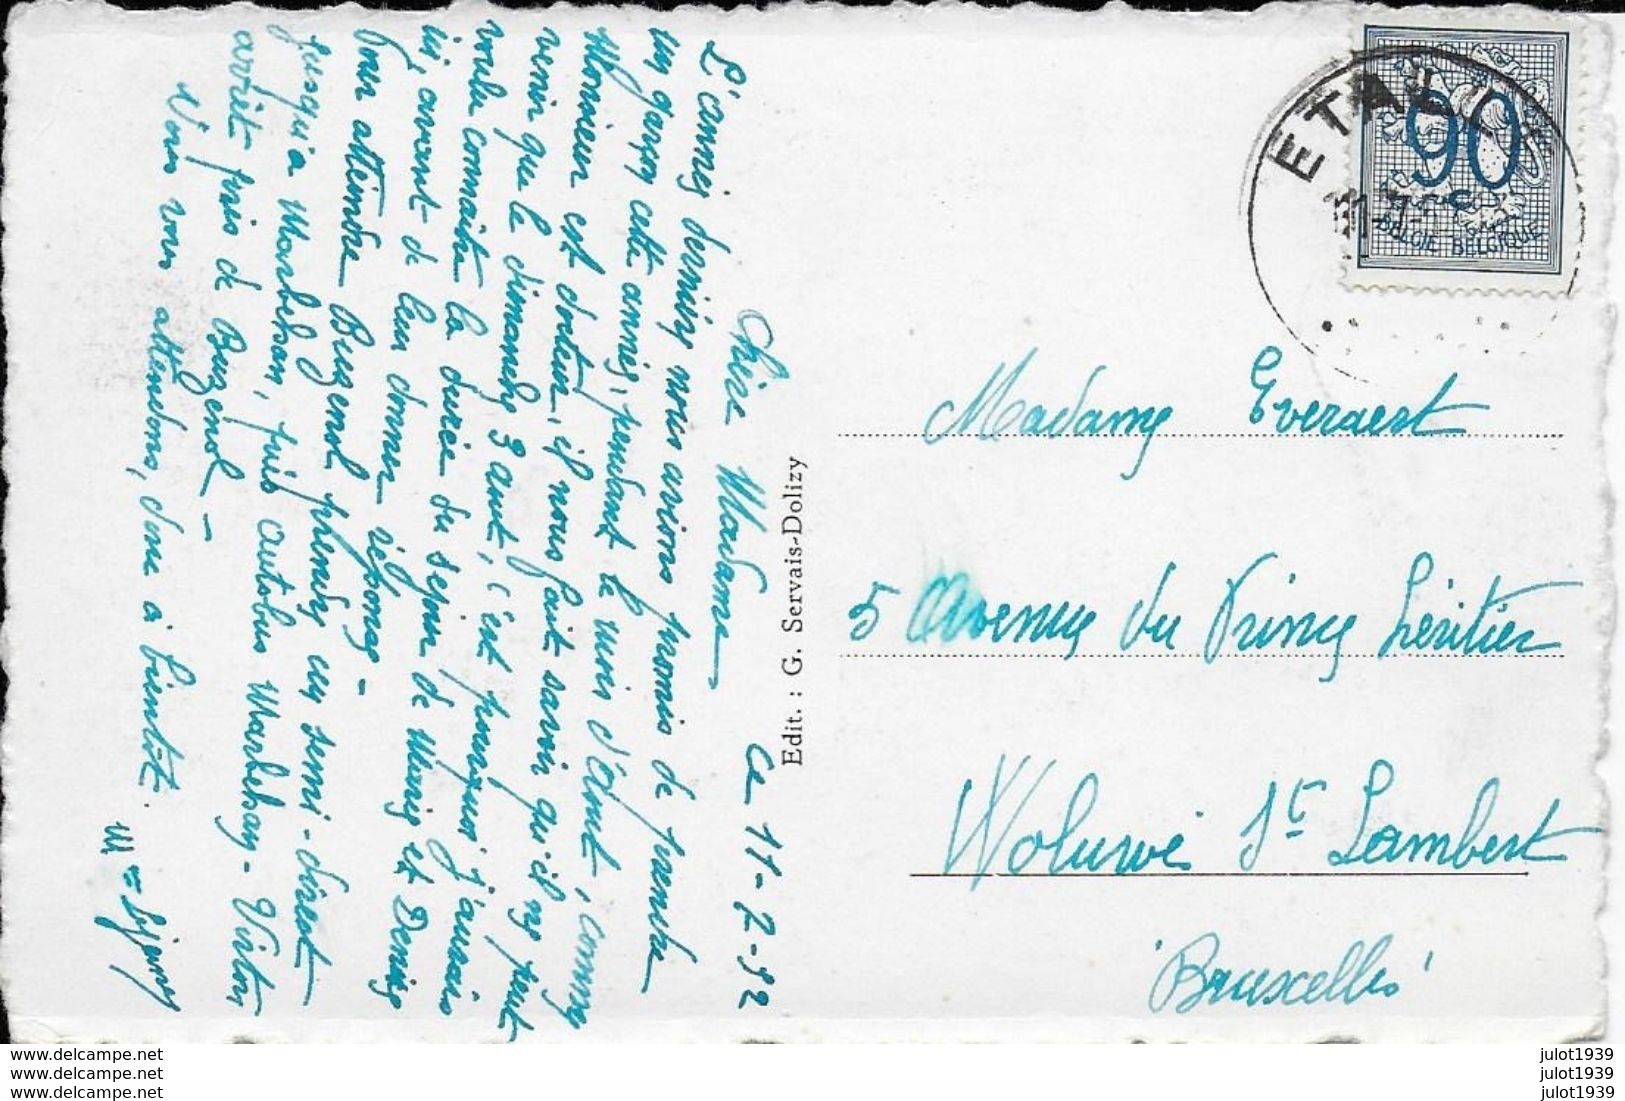 Ce 11-7-52
Chère Madame
L'année dernière nous avions promis de prendre
un garçon cette année, pendant le mois d'Aout, comme
Monsieur est docteur, il nous fait savoir qu'il ne peut
venir que le dimanche 3 aout, c'est pourquoi j'aurais
voulu connaitre la durée du séjour de Mimie et Denise
ici, avant de leur donner réponse -
Pour atteindre Buzenol prendre un semi-direct
jusqu'à Marbehan, puis autobus Marbehan - Virton
arrêt près de Buzenol -
Nous vous attendons, donc à bientôt.
Edit. : G. Servais-Dolizy
ETALLE
90 c
BELGIE-BELGIQUE
Madame Everaert
5 Avenue du Prince héritier
Woluwé St Lambert
Bruxelles
www.delcampe.net
www.delcampe.net
www.delcampe.net
julot1939
julot1939
julot1939